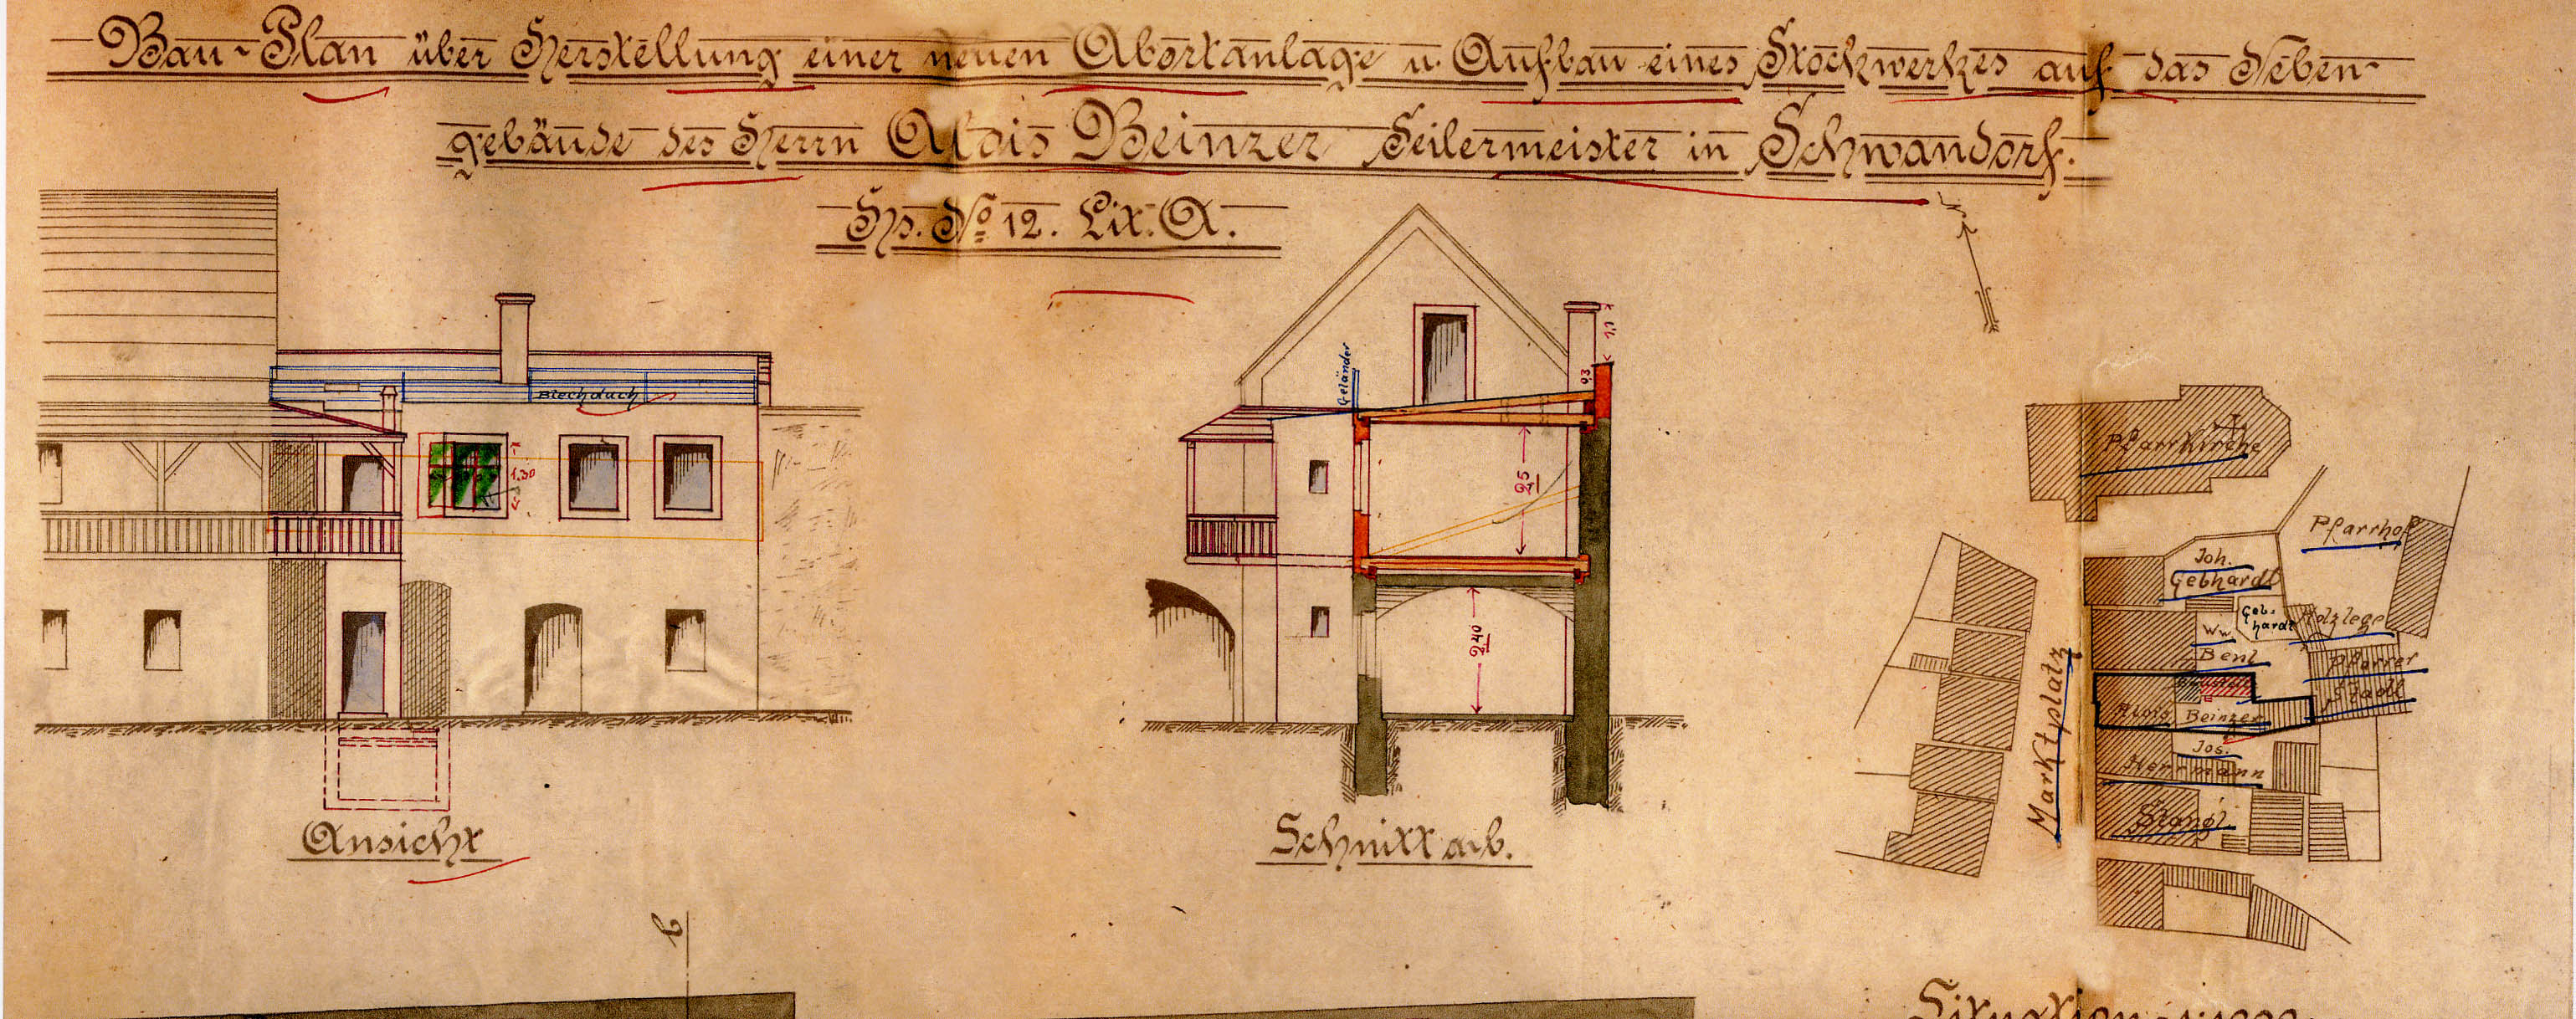 Bau-Plan über Herstellung einer neuen Abortanlage u. Aufbau eines Stockwerkes auf das Neben-
gebäude des Herrn Alois Beinzer Seilermeister in Schwandorf.
Hs. No 12. Lit. A.
Blechdach
1.30
Ansicht
Geländer
1,1
0,3
2,5
2,40
Schnitt a.b.
b
N
Pfarrkirche
Pfarrhof
Joh.
Gebhardt
Geb-
hardt
Holzlege
Ww
Benl
Pfarrer
Stadl
Marktplatz
Alois Beinzer
Jos.
Herrmann
Stangl
Situation 1:1000.